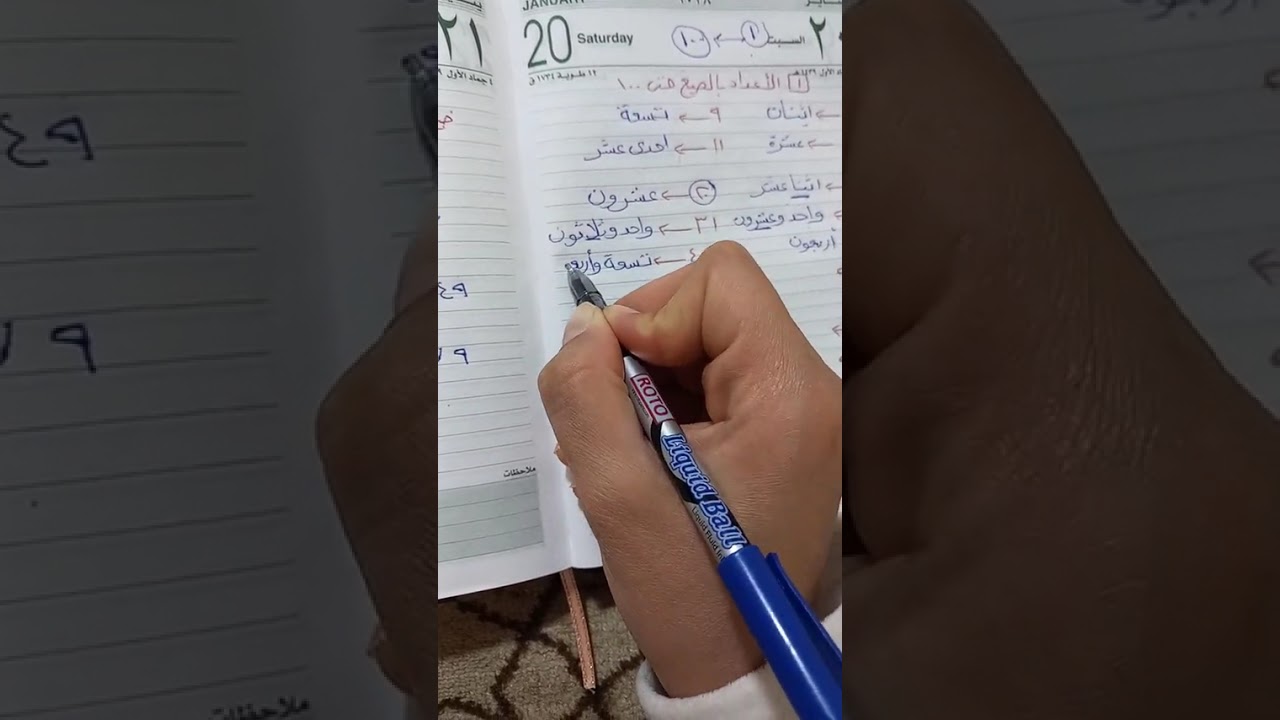 JANUARY ٢٠١٨
20 Saturday السبت ٢٠
١ ← ١٠٠
١٢ طوبة ١٧٣٤ ق
١ الأعداد بالصيغ حتى ١٠٠
← اثنان ٩ ← تسعة
← عشرة ١١ ← احدى عشر
← اثنا عشر ٢٠ ← عشرون
← واحد وعشرون ٣١ ← واحد وثلاثون
أربعون ٤ ← تسعة وأربعو
٢١
جماد الأول
٤٩
٩
ملاحظات
ROTO
Liquid Ball